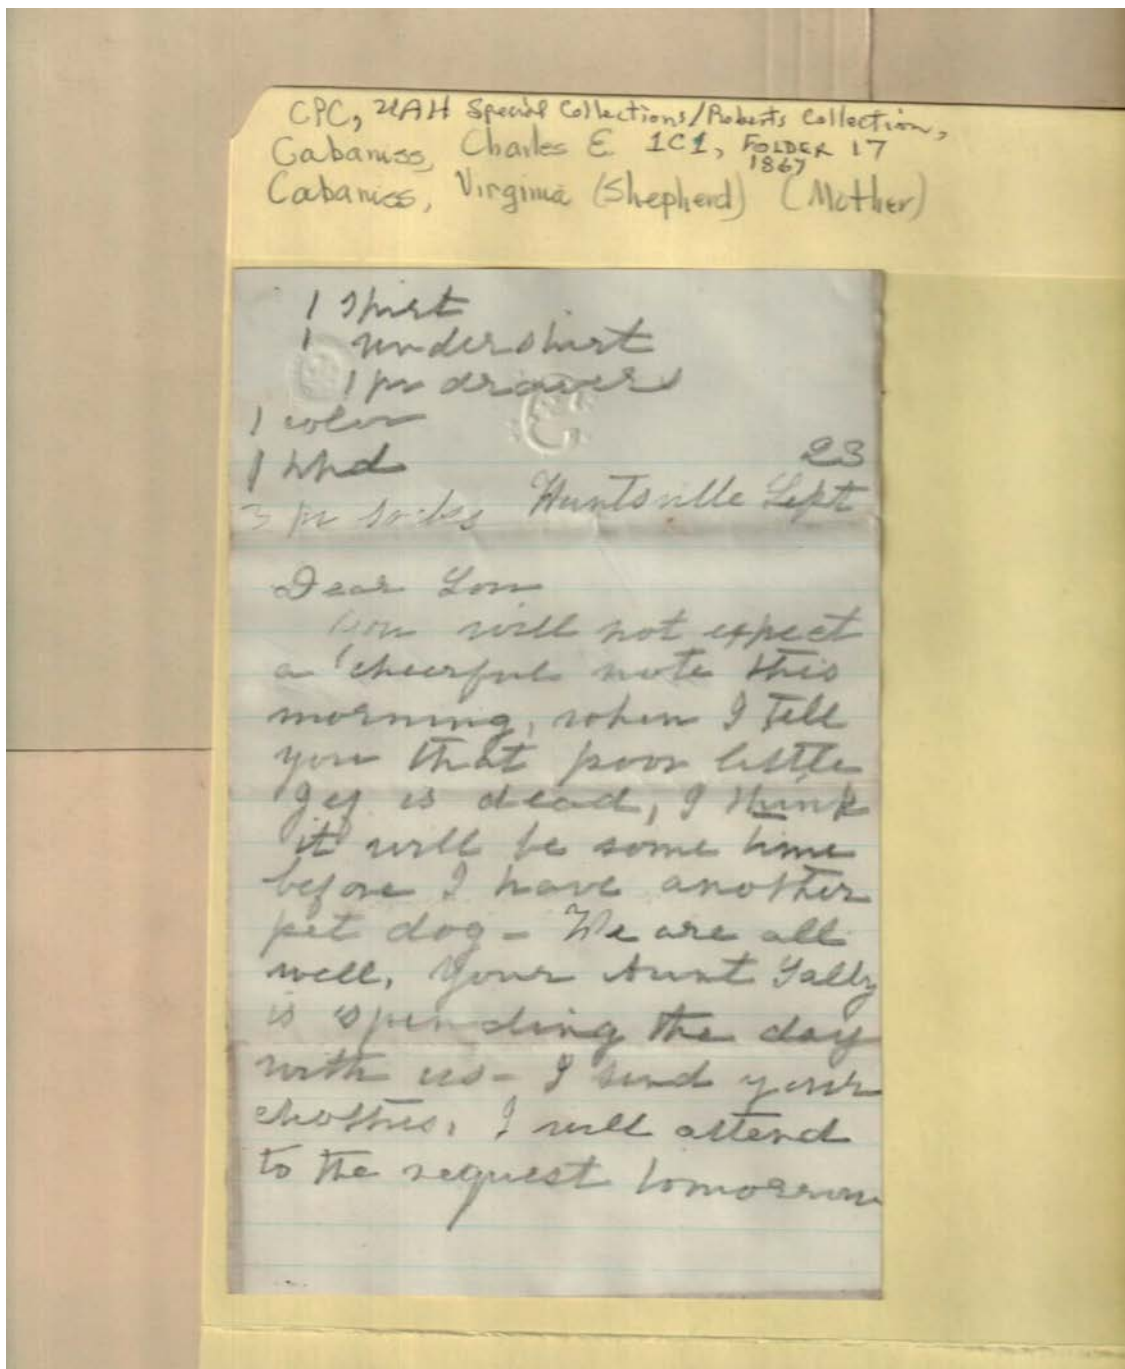 CPC, UAH Special Collections/Roberts Collection,
Cabaniss, Charles E 1C1, FOLDER 17
1867
Cabaniss, Virginia (Shepherd) (Mother)
1 shirt
1 undershirt
1 pr drawers
1 color
1 hhd
23
3 pr socks Huntsville Sept
Dear Son
You will not expect
a cheerful note this
morning, when I tell
you that poor little
is dead, I think
it will be some time
before I have another
pet dog - We are all
well, Your Aunt Sally
is spending the day
with us - I send your
clothes. I will attend
to the request tomorrow